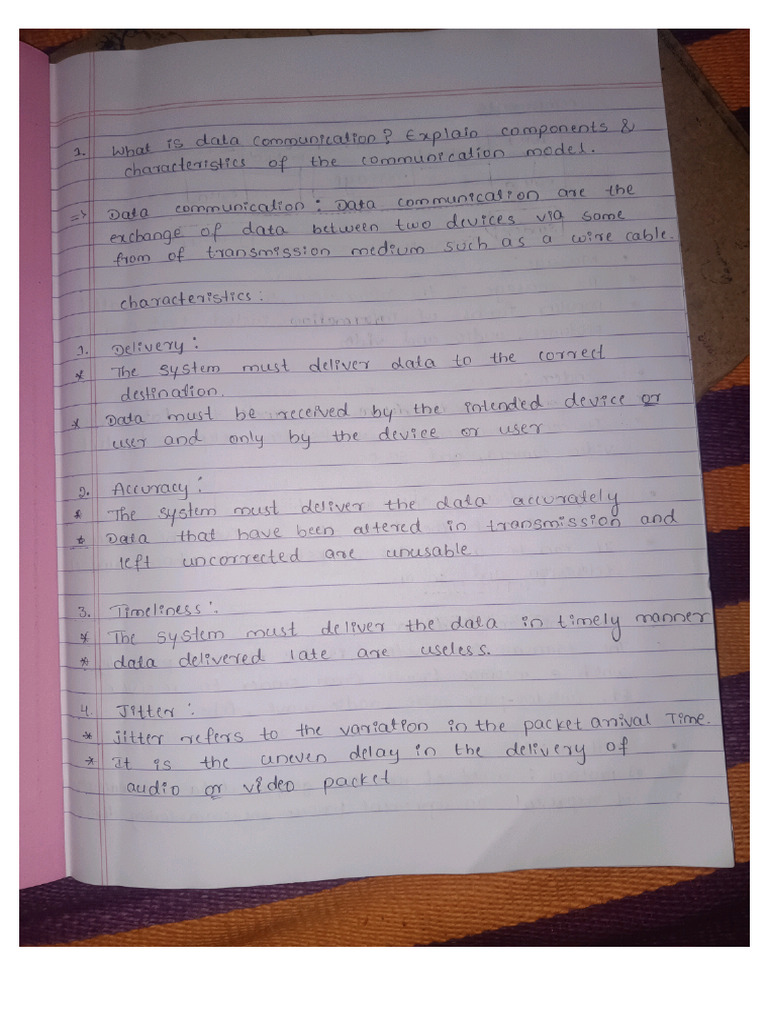 1. What is data communication? Explain components &
characteristics of the communication model.
=> Data communication : Data communication are the
exchange of data between two devices via some
from of transmission medium such as a wire cable.
characteristics :
1. Delivery :
* The system must deliver data to the correct
destination.
* Data must be received by the intended device or
user and only by the device or user
2. Accuracy :
* The system must deliver the data accurately
* Data that have been altered in transmission and
left uncorrected are unusable
3. Timeliness :
* The system must deliver the data in timely manner
* data delivered late are useless.
4. Jitter :
* jitter refers to the variation in the packet arrival Time.
* It is the uneven delay in the delivery of
audio or video packet